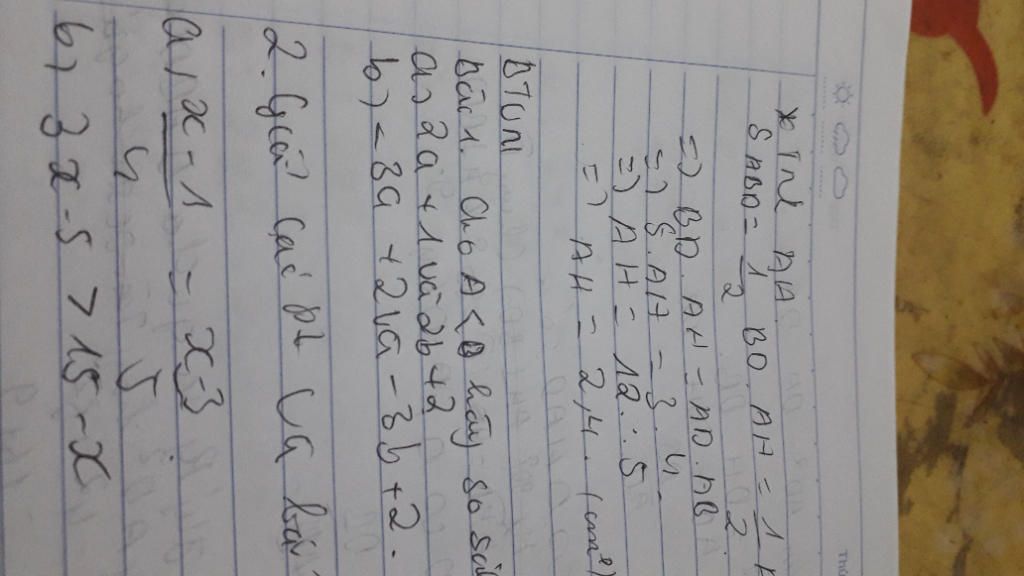 * Tính AH
S ABD = 1/2 BD. AH = 1/2
=) BD. AH = AD. AB
=) 5. AH = 3. 4
=) AH = 12 : 5
=) AH = 2,4. (cm²)
BTVN
Bài 1. Cho A < b hãy so sán
a) 2a + 1 và 2b + 2
b) - 3a + 2 và - 3b + 2.
2. Giải các pt và bất
a, x - 1 / 4 = x - 3 / 5
b) 3x - 5 > 15 - x